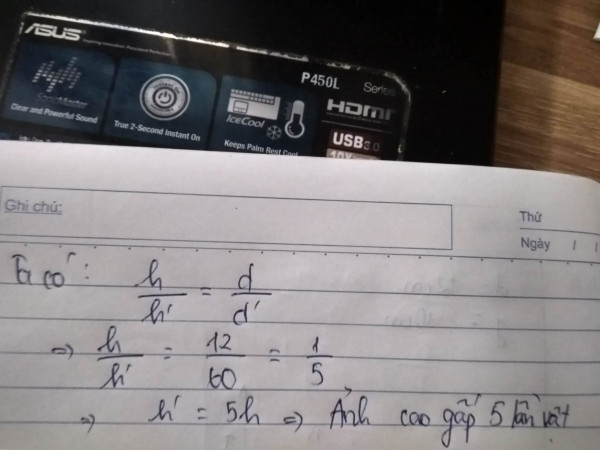 ASUS
Inspiring Innovation · Persistent Perfection
P450L Series
SonicMaster
Clear and Powerful Sound
True 2-Second Instant On
IceCool
Keeps Palm Rest Cool
HDMI
USB 3.0
10X
Ghi chú:
Thứ
Ngày / /
Ta có:
h/h' = d/d'
=> h/h' = 12/60 = 1/5
=> h' = 5h => Ảnh cao gấp 5 lần vật